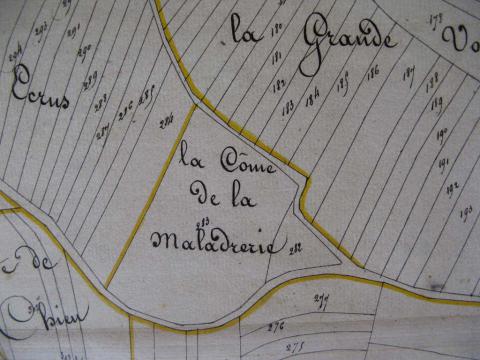 la Grande Vo
Ecrus
la Côme
de la
Maladrerie
e de
Chien
178
180
181
182
183
184
185
186
187
188
189
190
191
192
193
291
290
289
288
287
286
285
284
283
282
277
276
275